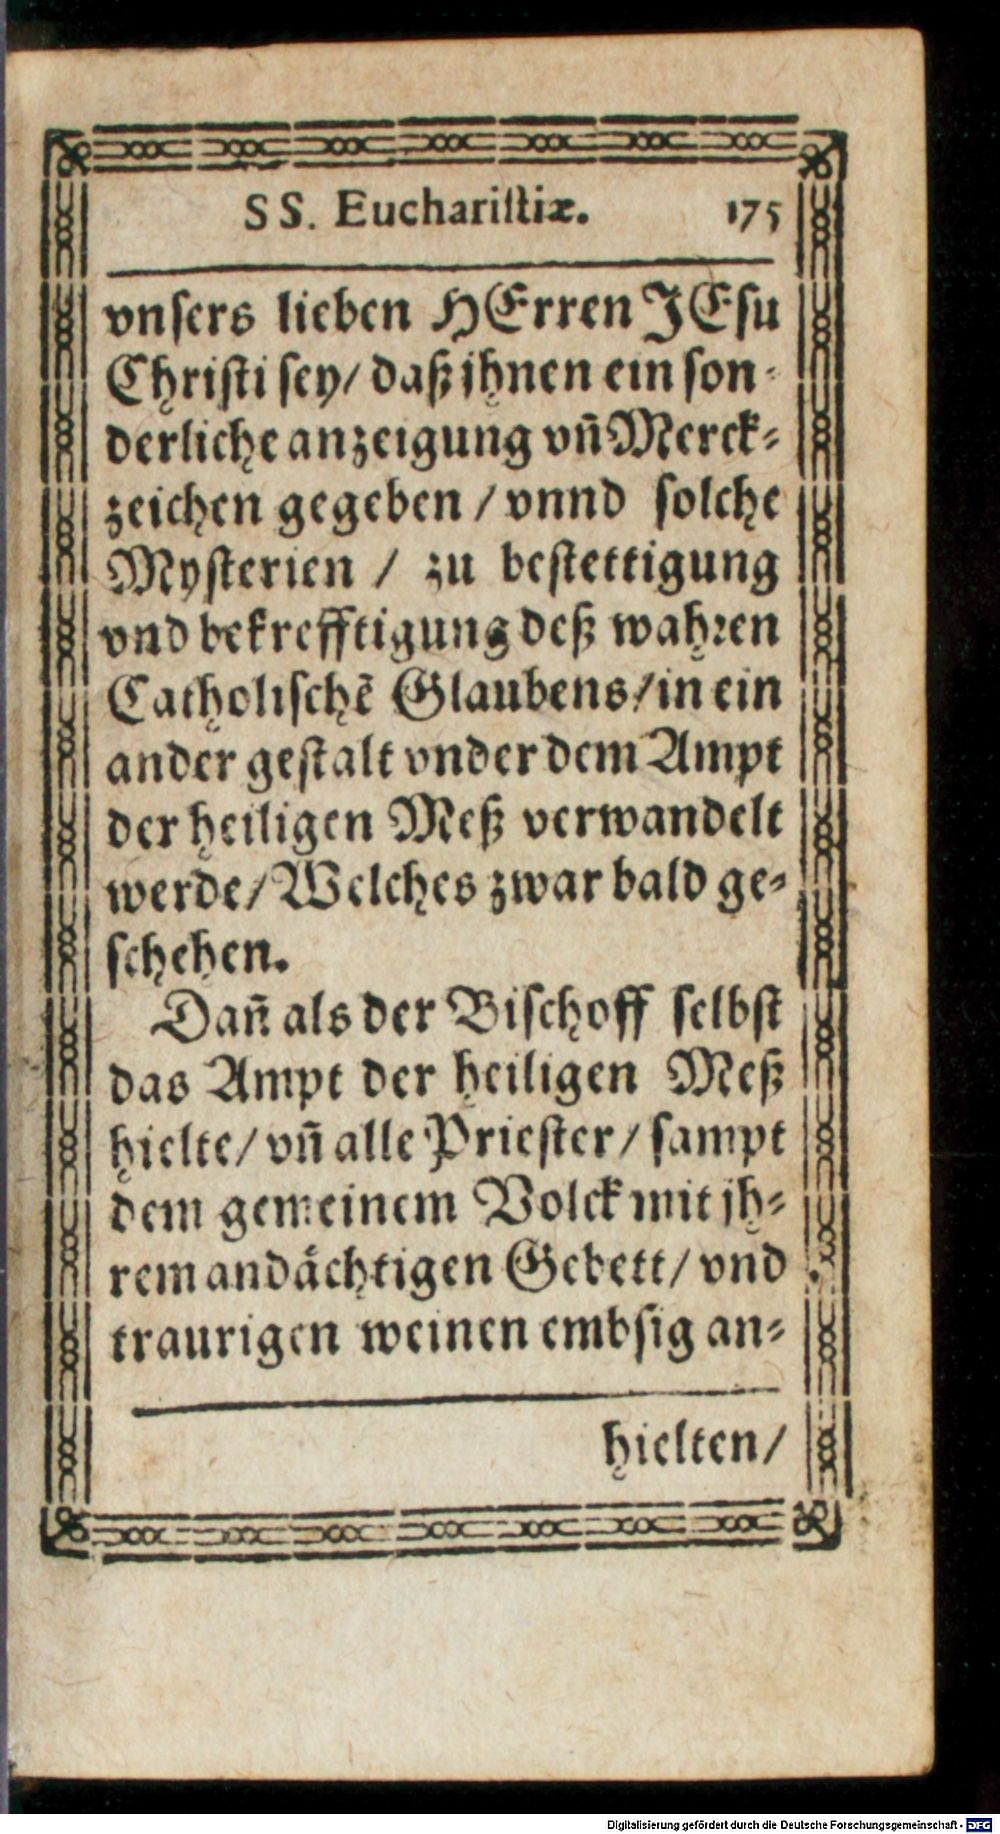 SS. Euchariſtiæ. 175
vnſers lieben HErren JEſu
Chriſti ſey/ daß jhnen ein ſon-
derliche anzeigung vñ Merck-
zeichen gegeben / vnnd ſolche
Myſterien / zu beſtettigung
vnd bekrefftigung deß wahren
Catholiſchẽ Glaubens/ in ein
ander geſtalt vnder dem Ampt
der heiligen Meß verwandelt
werde/ Welches zwar bald ge-
ſchehen.
Dañ als der Biſchoff ſelbſt
das Ampt der heiligen Meß
hielte/ vñ alle Prieſter/ ſampt
dem gemeinem Volck mit jh-
rem andaͤchtigen Gebett/ vnd
traurigen weinen embſig an-
hielten/
Digitalisierung gefördert durch die Deutsche Forschungsgemeinschaft - DFG